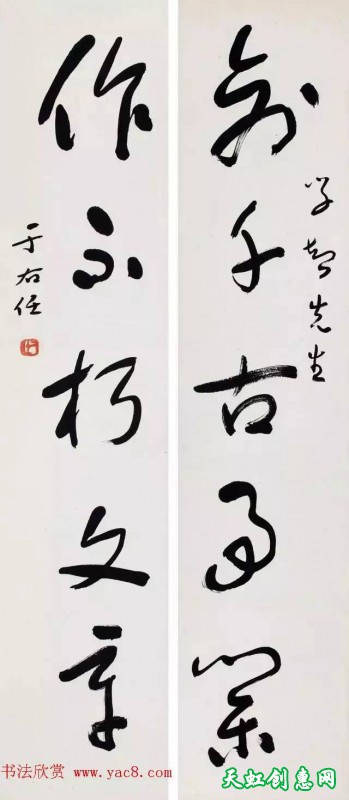 学智先生
創千古事業
作不朽文章
于右任
书法欣赏 www.yac8.com
天虹创惠网